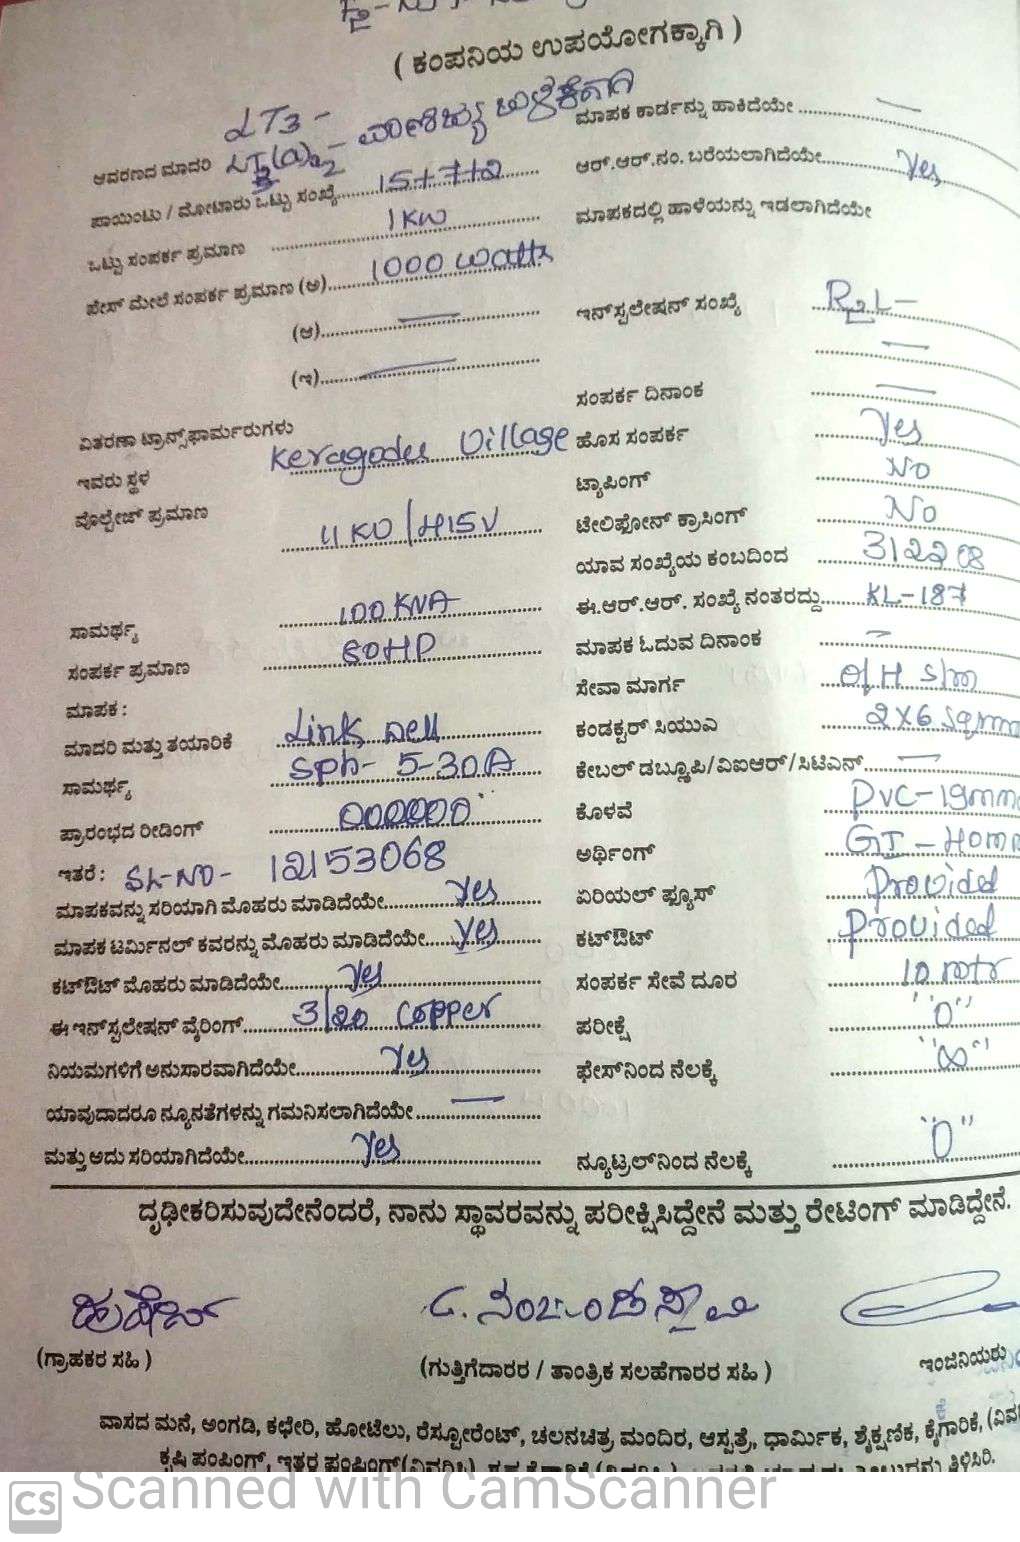 ( ಕಂಪನಿಯ ಉಪಯೋಗಕ್ಕಾಗಿ )
LT3 -
ಆವರಣದ ಮಾದರಿ - ವಾಣಿಜ್ಯ ಬಳಕೆಗಾಗಿ
ಮಾಪಕ ಕಾರ್ಡನ್ನು ಹಾಕಿದೆಯೇ
ಪಾಯಿಂಟು / ಮೋಟಾರು ಒಟ್ಟು ಸಂಖ್ಯೆ 15+7+2
ಆರ್.ಆರ್.ನಂ. ಬರೆಯಲಾಗಿದೆಯೇ Yes
ಒಟ್ಟು ಸಂಪರ್ಕ ಪ್ರಮಾಣ 1KW
ಮಾಪಕದಲ್ಲಿ ಹಾಳೆಯನ್ನು ಇಡಲಾಗಿದೆಯೇ
ಫೇಸ್ ಮೇಲೆ ಸಂಪರ್ಕ ಪ್ರಮಾಣ (ಅ) 1000 watts
(ಆ)
ಇನ್‌ಸ್ಟಲೇಷನ್ ಸಂಖ್ಯೆ
(ಇ)
ಸಂಪರ್ಕ ದಿನಾಂಕ
ವಿತರಣಾ ಟ್ರಾನ್ಸ್‌ಫಾರ್ಮರುಗಳು
ಇವರು ಸ್ಥಳ Keragodu Village
ಹೊಸ ಸಂಪರ್ಕ Yes
ವೊಲ್ಟೇಜ್ ಪ್ರಮಾಣ 11KV/415V
ಟ್ಯಾಪಿಂಗ್ No
ಟೇಲಿಫೋನ್ ಕ್ರಾಸಿಂಗ್ No
ಯಾವ ಸಂಖ್ಯೆಯ ಕಂಬದಿಂದ
ಸಾಮರ್ಥ್ಯ 100 KVA
ಈ.ಆರ್.ಆರ್. ಸಂಖ್ಯೆ ನಂತರದ್ದು KL-187
ಸಂಪರ್ಕ ಪ್ರಮಾಣ 60HP
ಮಾಪಕ ಓದುವ ದಿನಾಂಕ
ಮಾಪಕ :
ಸೇವಾ ಮಾರ್ಗ O/H S/m
ಮಾದರಿ ಮತ್ತು ತಯಾರಿಕೆ Link Well
ಕಂಡಕ್ಟರ್ ಸಿಯುಎ 2X6 Sqmm
ಸಾಮರ್ಥ್ಯ Sph- 5-30A
ಕೇಬಲ್ ಡಬ್ಲ್ಯೂಪಿ/ವಿಐಆರ್/ಸಿಟಿಎನ್
ಪ್ರಾರಂಭದ ರೀಡಿಂಗ್ 000000
ಕೊಳವೆ PVC-19mm
ಇತರೆ : SL-NO- 12153068
ಅರ್ಥಿಂಗ್ GI -
ಮಾಪಕವನ್ನು ಸರಿಯಾಗಿ ಮೊಹರು ಮಾಡಿದೆಯೇ Yes
ಏರಿಯಲ್ ಫ್ಯೂಸ್ Provided
ಮಾಪಕ ಟರ್ಮಿನಲ್ ಕವರನ್ನು ಮೊಹರು ಮಾಡಿದೆಯೇ Yes
ಕಟ್‌ಔಟ್ Provided
ಕಟ್‌ಔಟ್ ಮೊಹರು ಮಾಡಿದೆಯೇ Yes
ಸಂಪರ್ಕ ಸೇವೆ ದೂರ 10 mtr
ಈ ಇನ್‌ಸ್ಟಲೇಷನ್ ವೈರಿಂಗ್ 3/20 Copper
ಪರೀಕ್ಷೆ "0"
ನಿಯಮಗಳಿಗೆ ಅನುಸಾರವಾಗಿದೆಯೇ Yes
ಫೇಸ್‌ನಿಂದ ನೆಲಕ್ಕೆ "∞"
ಯಾವುದಾದರೂ ನ್ಯೂನತೆಗಳನ್ನು ಗಮನಿಸಲಾಗಿದೆಯೇ
ಮತ್ತು ಅದು ಸರಿಯಾಗಿದೆಯೇ Yes
ನ್ಯೂಟ್ರಲ್‌ನಿಂದ ನೆಲಕ್ಕೆ "0"
ದೃಢೀಕರಿಸುವುದೇನೆಂದರೆ, ನಾನು ಸ್ಥಾವರವನ್ನು ಪರೀಕ್ಷಿಸಿದ್ದೇನೆ ಮತ್ತು ರೇಟಿಂಗ್ ಮಾಡಿದ್ದೇನೆ.
(ಗ್ರಾಹಕರ ಸಹಿ )
(ಗುತ್ತಿಗೆದಾರರ / ತಾಂತ್ರಿಕ ಸಲಹೆಗಾರರ ಸಹಿ )
ಇಂಜಿನಿಯರು
ವಾಸದ ಮನೆ, ಅಂಗಡಿ, ಕಛೇರಿ, ಹೋಟೆಲು, ರೆಸ್ಟೋರೆಂಟ್, ಚಲನಚಿತ್ರ ಮಂದಿರ, ಆಸ್ಪತ್ರೆ, ಧಾರ್ಮಿಕ, ಶೈಕ್ಷಣಿಕ, ಕೈಗಾರಿಕೆ,
ಕೃಷಿ ಪಂಪಿಂಗ್, ಇತರ ಪಂಪಿಂಗ್ ತಿಳಿಸಿರಿ.
CS Scanned with CamScanner